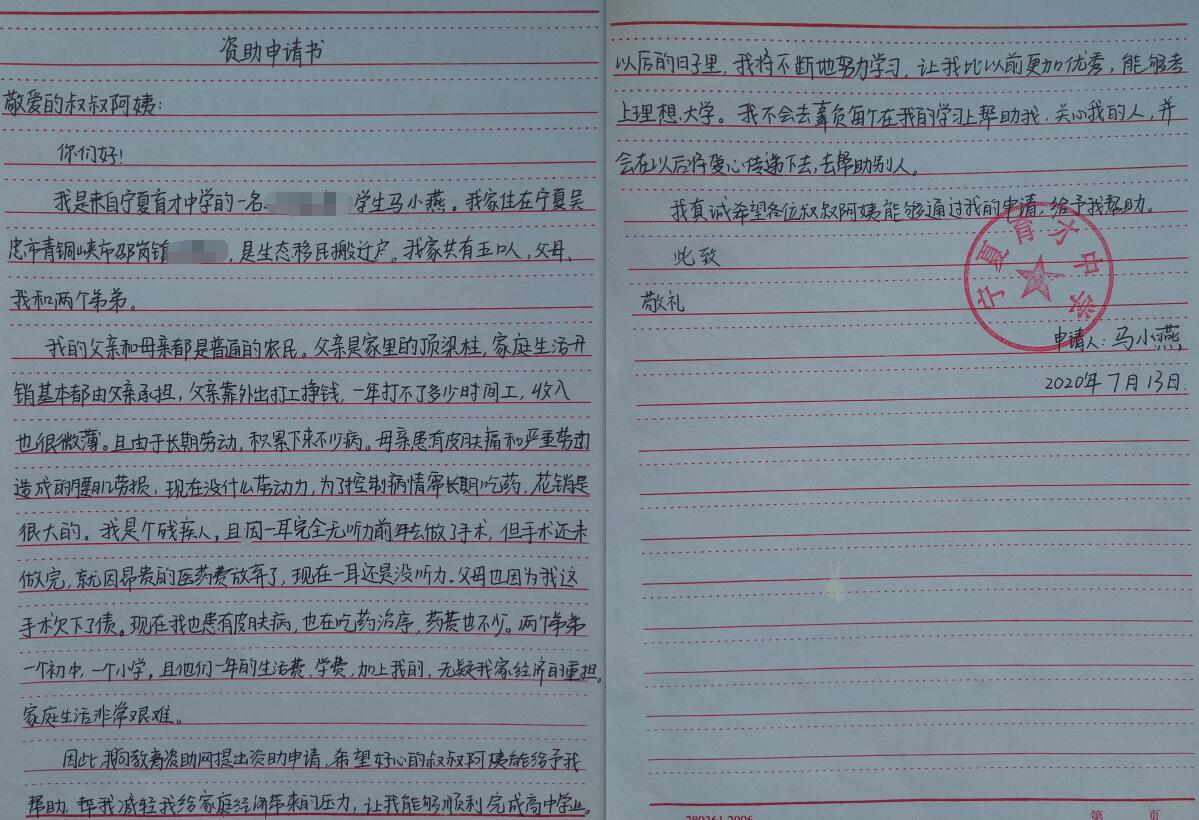 资助申请书
敬爱的叔叔阿姨：
你们好！
我是来自宁夏育才中学的一名 学生马小燕。我家住在宁夏吴
忠市青铜峡市邵岗镇 ，是生态移民搬迁户。我家共有五口人，父母、
我和两个弟弟。
我的父亲和母亲都是普通的农民。父亲是家里的顶梁柱，家庭生活开
销基本都由父亲承担，父亲靠外出打工挣钱，一年打不了多少时间工，收入
也很微薄。且由于长期劳动，积累下来不少病。母亲患有皮肤病和严重劳动
造成的腰肌劳损，现在没什么劳动力，为了控制病情需长期吃药，花销是
很大的。我是个残疾人，且因一耳完全无听力前年去做了手术，但手术还未
做完，就因昂贵的医药费放弃了，现在一耳还是没听力。父母也因为我这
手术欠下了债。现在我也患有皮肤病，也在吃药治疗，药费也不少。两个弟弟
一个初中，一个小学，且他们一年的生活费、学费，加上我的，无疑我家经济的重担。
家庭生活非常艰难。
因此，我向教育资助网提出资助申请，希望好心的叔叔阿姨能给予我
帮助，帮我减轻我给家庭经济带来的压力，让我能够顺利完成高中学业。
以后的日子里，我将不断地努力学习，让我比以前更加优秀，能够考
上理想大学。我不会去辜负每个在我的学习上帮助我、关心我的人，并
会在以后将爱心传递下去，去帮助别人。
我真诚希望各位叔叔阿姨能够通过我的申请，给予我帮助。
此致
敬礼
宁夏育才中学
申请人：马小燕
2020年7月13日
280361.2006
第 页